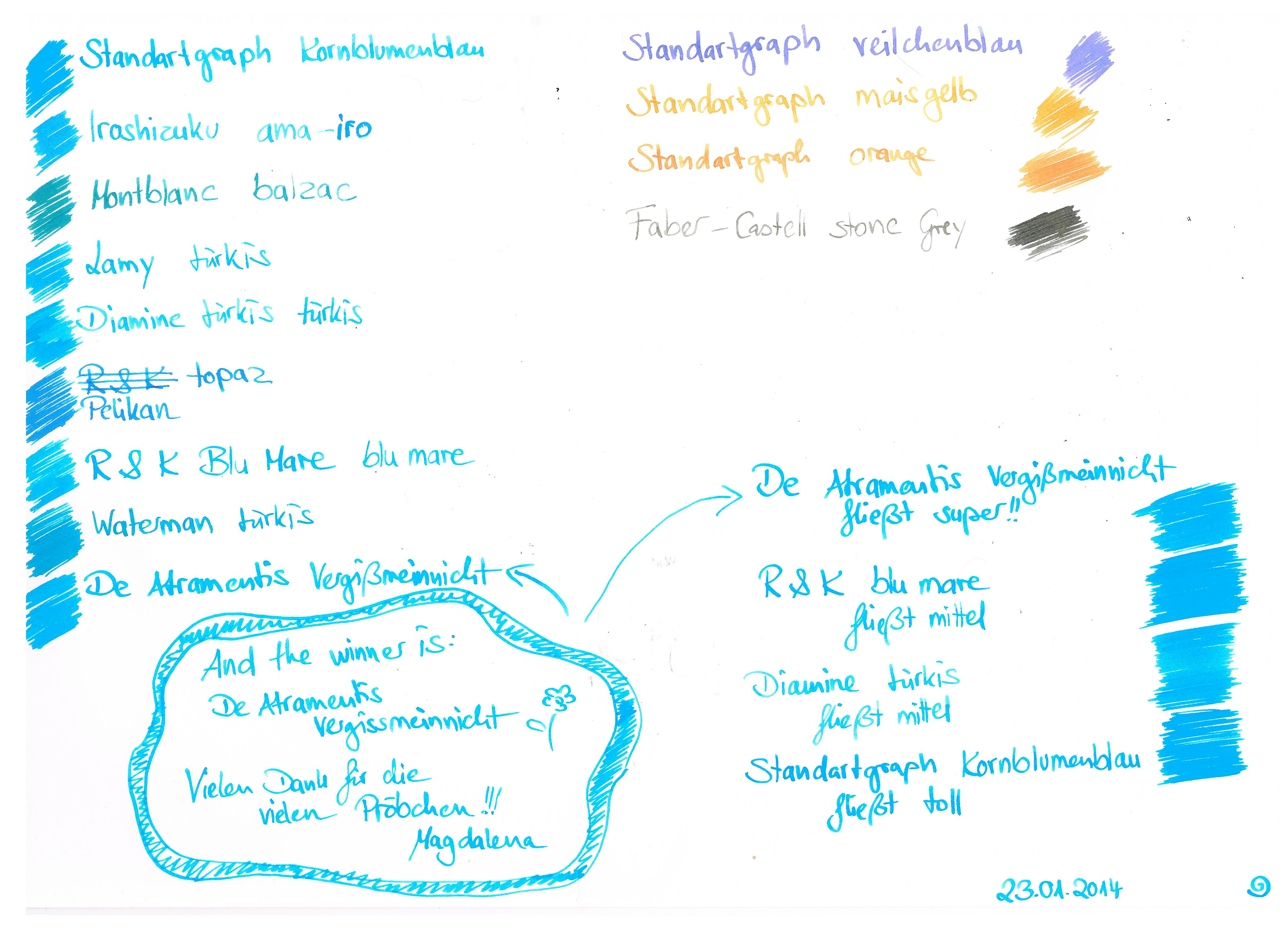 Standartgraph Kornblumenblau
Iroshizuku ama-iro
Montblanc balzac
Lamy türkis
Diamine türkis türkis
R & K topaz
Pelikan
R & K Blu Mare blu mare
Waterman türkis
De Atramentis Vergißmeinnicht
And the winner is:
De Atramentis
Vergissmeinnicht
Vielen Dank für die
vielen Pröbchen!!!
Magdalena
Standartgraph veilchenblau
Standartgraph maisgelb
Standartgraph orange
Faber-Castell stone Grey
De Atramentis Vergißmeinnicht
fließt super!!
R & K blu mare
fließt mittel
Diamine türkis
fließt mittel
Standartgraph Kornblumenblau
fließt toll
23.01.2014